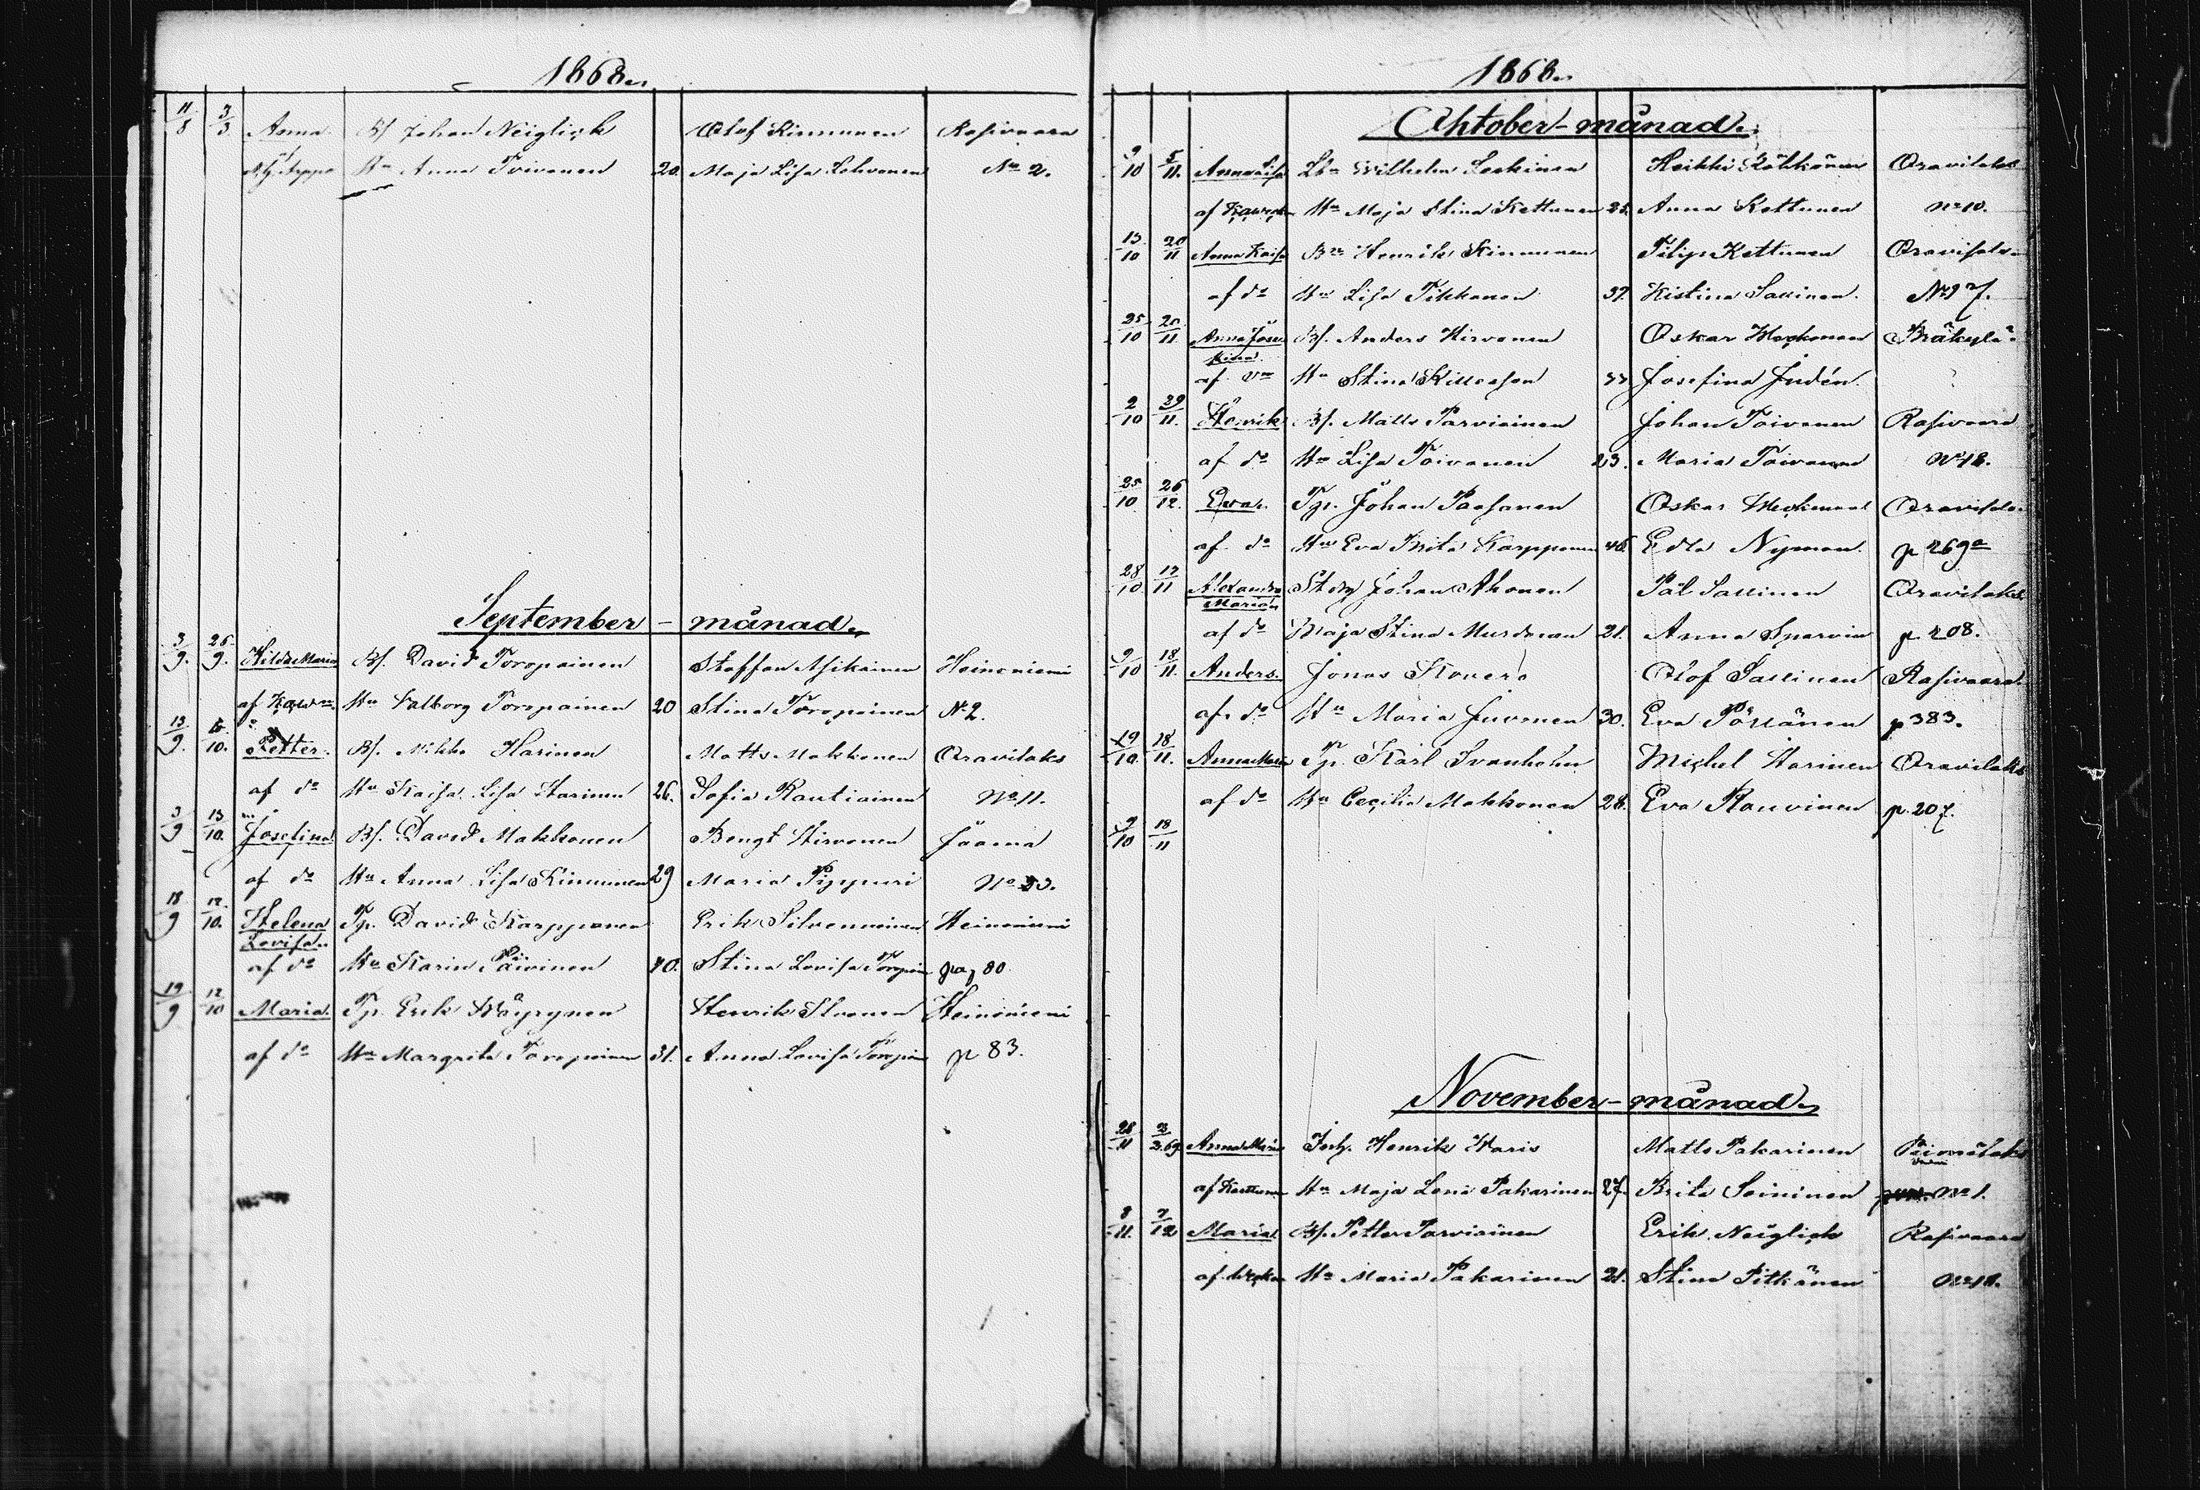 1868.
11/8 3/3 Anna Bf Johan Neiglick Olof Kinnunen Rasivaara
Hu Anna Toivonen 20. Maja Lisa Lehvonen No 2.
September - månad.
3/9. 26/9. Hilda Maria Bf. David Toropainen Staffan Asikainen Heinoniemi
af Hu Valborg Toropainen 20 Stina Toropainen No 2.
13/9. 10. Petter. Bf. Mikko Harinen Matts Makkonen Oravilaks
af do Hu Kaisa Lisa Harinen 26. Sofia Rautiainen No 11.
3/9 13/10. Josefina Bf. David Makkonen Bengt Hirvonen Jaama
af do Hu Anna Lisa Kinnunen 29 Maria Pippuri No 33.
18/9 12/10. Helena Tp. David Karpponen Erik Silvennoinen Heinoniemi
Lovisa.
af do Hu Karin Päivinen 40. Stina Lovisa Toropain pag 80.
19/9 12/10 Maria. Tp. Erik Väyrynen Henrik Ilvonen Heinoniemi
af do Hu Margreta Toropainen 31. Anna Lovisa Toropain p 83.
1868.
Oktober - månad.
9/10 5/11. Anna Lisa Wilhelm Leskinen Heikki Kähkönen Oravilaks
af Hu Maja Stina Kettunen 25. Anna Kettunen No 10.
13/10 20/11 Anna Kaisa Bn Henrik Kinnunen Filip Kettunen Oravisalo
af do Hu Lisa Tikkanen 37. Kistina Sallinen. No 7.
25/10 20/11. Anna Jose Bf. Anders Hirvonen Oskar Weckman Kräkylä
fina.
af do Hu Stina 33 Josefina Judén.
2/10 29/11. Henrik Bf. Matts Parviainen Johan Toivonen Rasivaara
af do Hu Lisa Toivonen 23. Maria Toivonen No 18.
25/10 26/12. Eva. Tp. Johan Paasonen Oskar Weckman Oravisalo
af do Hu Eva Brita Karpponen 46. Edla Nyman. p 269
28/10 13/11 Alexandra Johan Ahonen Pål Sallinen Oravilaks
Maria
af do Maja Stina Mustonen 21. Anna Sparvin p 208.
9/10 18/11. Anders. Jonas Kovero Olof Sallinen Rasivaara.
af do Hu Maria Juvonen 30. Eva Pöllänen p 383.
19/10 18/11. Anna Maria Tp. Karl Ivanholm Michel Harinen Oravilaks
af do Hu Cecilia Makkonen 28. Eva Rauvinen p. 207.
9/10 18/11
November - månad.
28/11 Anna Maria Inh. Henrik Varis Matts Pakarinen
af Hu Maja Lena Pakarinen 27. Brita Soininen No 1.
8/11. 7/12 Maria. Bf. Petter Parviainen Erik Neiglick Rasivaara
af Hu Maria Pakarinen 21. Stina Pitkänen No 18.